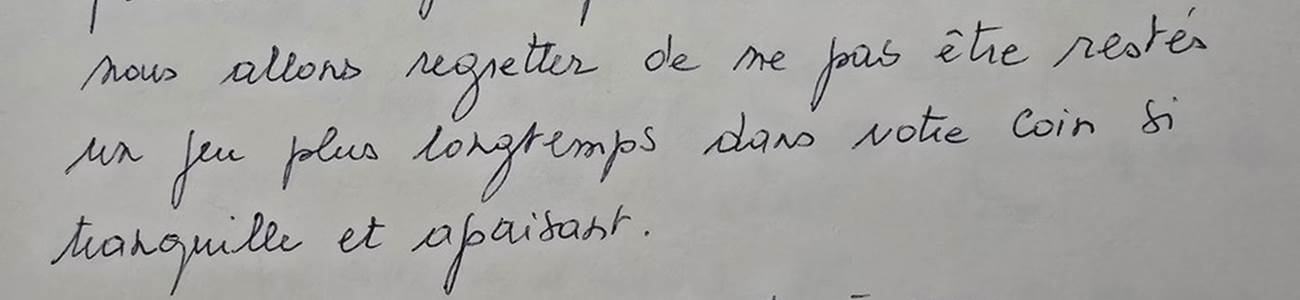 nous allons regretter de ne pas être restés
un peu plus longtemps dans votre coin si
tranquille et apaisant.